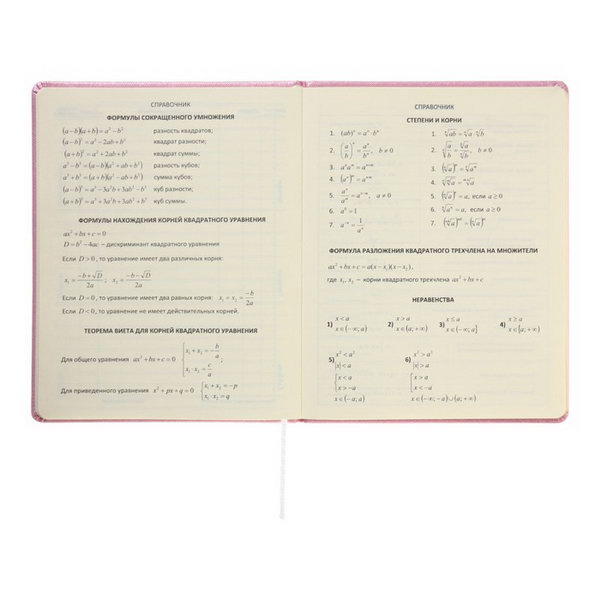 СПРАВОЧНИК
ФОРМУЛЫ СОКРАЩЕННОГО УМНОЖЕНИЯ
(a−b)(a+b)=a²−b² разность квадратов;
(a−b)²=a²−2ab+b² квадрат разности;
(a+b)²=a²+2ab+b² квадрат суммы;
a³−b³=(a−b)(a²+ab+b²) разность кубов;
a³+b³=(a+b)(a²−ab+b²) сумма кубов;
(a−b)³=a³−3a²b+3ab²−b³ куб разности;
(a+b)³=a³+3a²b+3ab²+b³ куб суммы.
ФОРМУЛЫ НАХОЖДЕНИЯ КОРНЕЙ КВАДРАТНОГО УРАВНЕНИЯ
ax²+bx+c=0
D=b²−4ac – дискриминант квадратного уравнения
Если D>0, то уравнение имеет два различных корня:
x₁=(−b+√D)/2a; x₂=(−b−√D)/2a
Если D=0, то уравнение имеет два равных корня: x₁=x₂=−b/2a
Если D<0, то уравнение не имеет действительных корней.
ТЕОРЕМА ВИЕТА ДЛЯ КОРНЕЙ КВАДРАТНОГО УРАВНЕНИЯ
Для общего уравнения ax²+bx+c=0 {x₁+x₂=−b/a
x₁·x₂=c/a;
Для приведенного уравнения x²+px+q=0 {x₁+x₂=−p
x₁·x₂=q
СПРАВОЧНИК
СТЕПЕНИ И КОРНИ
1. (ab)ⁿ=aⁿ·bⁿ 1. ⁿ√ab=ⁿ√a·ⁿ√b
2. (a/b)ⁿ=aⁿ/bⁿ, b≠0 2. ⁿ√(a/b)=ⁿ√a/ⁿ√b, b≠0
3. aⁿaᵐ=aⁿ⁺ᵐ 3.
4. (aⁿ)ᵐ=aⁿᵐ 4.
5. aⁿ/aᵐ=aⁿ⁻ᵐ, a≠0 5. (ⁿ√a)ⁿ=a, если a≥0
6. a⁰=1 6. ⁿ√aⁿ=a, если a≥0
7. a⁻ⁿ=1/aⁿ 7.
ФОРМУЛА РАЗЛОЖЕНИЯ КВАДРАТНОГО ТРЕХЧЛЕНА НА МНОЖИТЕЛИ
ax²+bx+c=a(x−x₁)(x−x₂),
где x₁, x₂ – корни квадратного трехчлена ax²+bx+c
НЕРАВЕНСТВА
1) x<a 2) x>a 3) x≤a 4) x≥a
x∈(−∞;a) x∈(a;+∞) x∈(−∞;a] x∈[a;+∞)
5) x²<a² 6) x²>a²
|x|<a |x|>a
{x<a x>a
x>−a x<−a
x∈(−a;a) x∈(−∞;−a)∪(a;+∞)